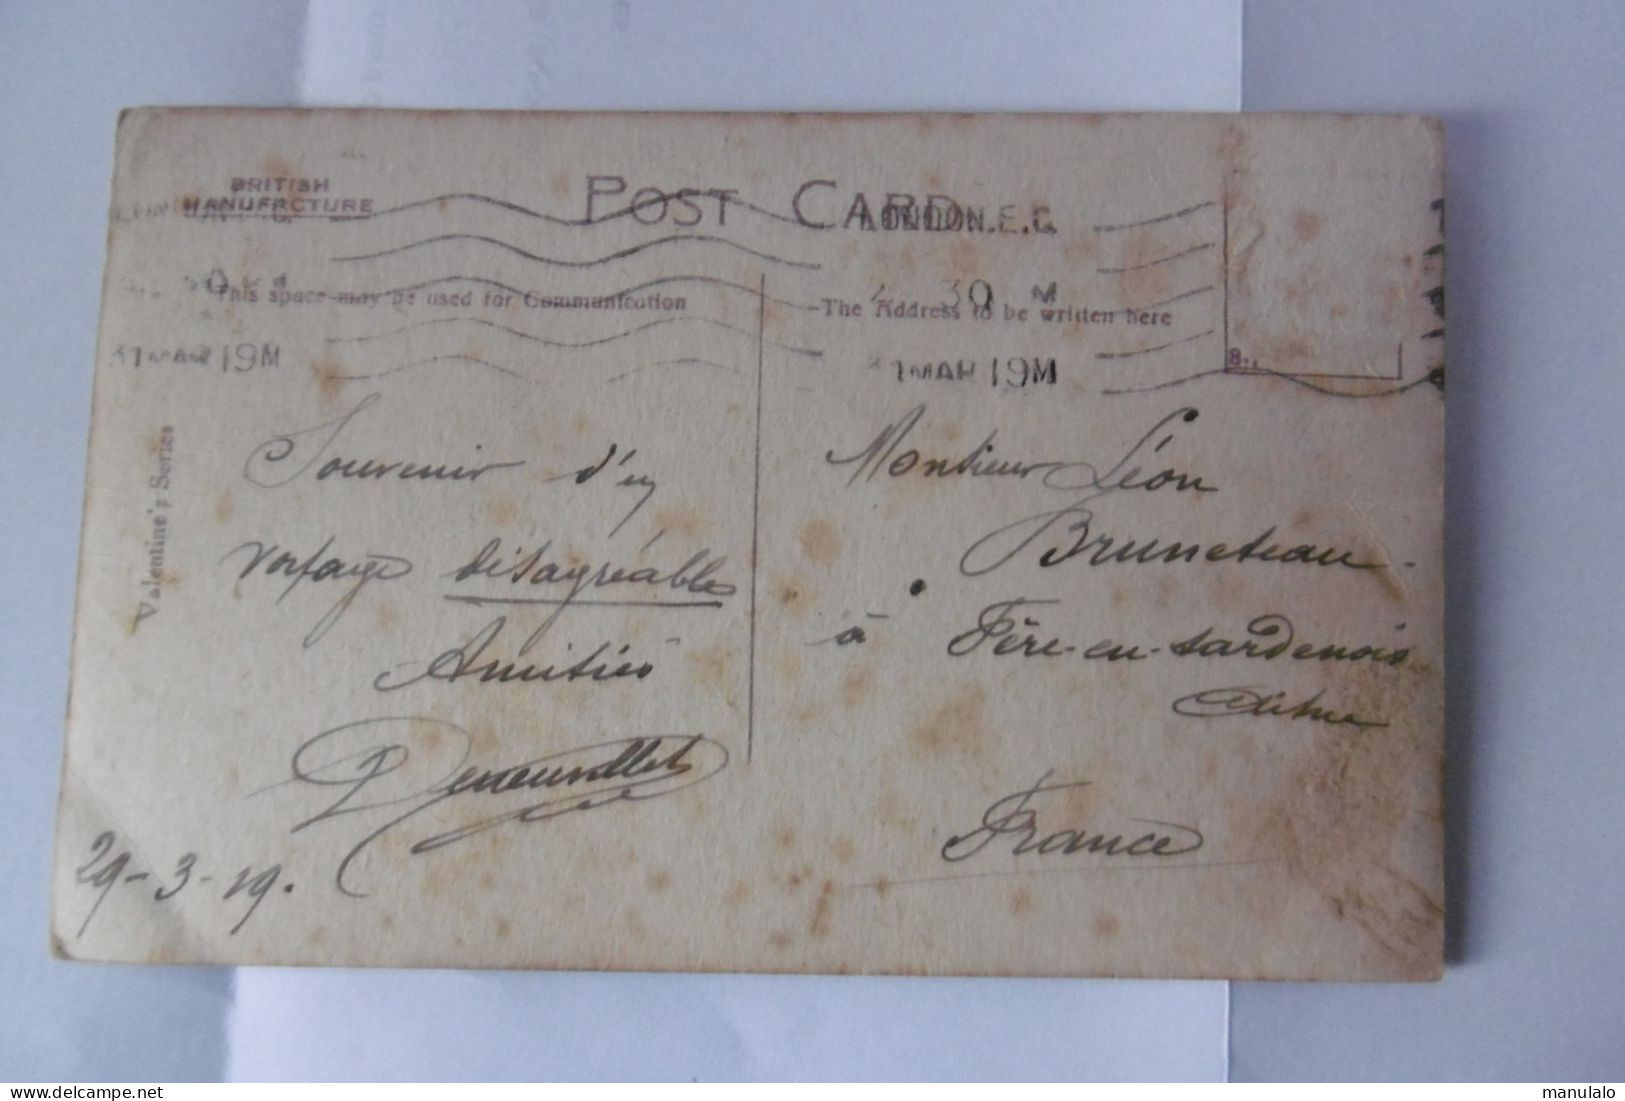 BRITISH
MANUFACTURE
POST CARD
LONDON.E.C.
30 M
31 MAR 19M
31 MAR 19M
This space may be used for Communication
The Address to be written here
Valentine's Series
Souvenir d'un
voyage désagréables
Amitiés
29-3-19.
Monsieur Léon
Bruneteau
à Fère-en-tardenois
Aisne
France
delcampe.net
manulalo